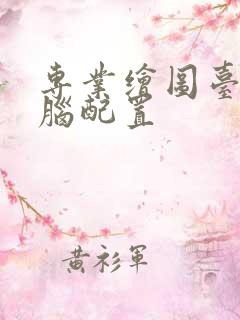 專業繪图臺
腦配置
黃衫軍